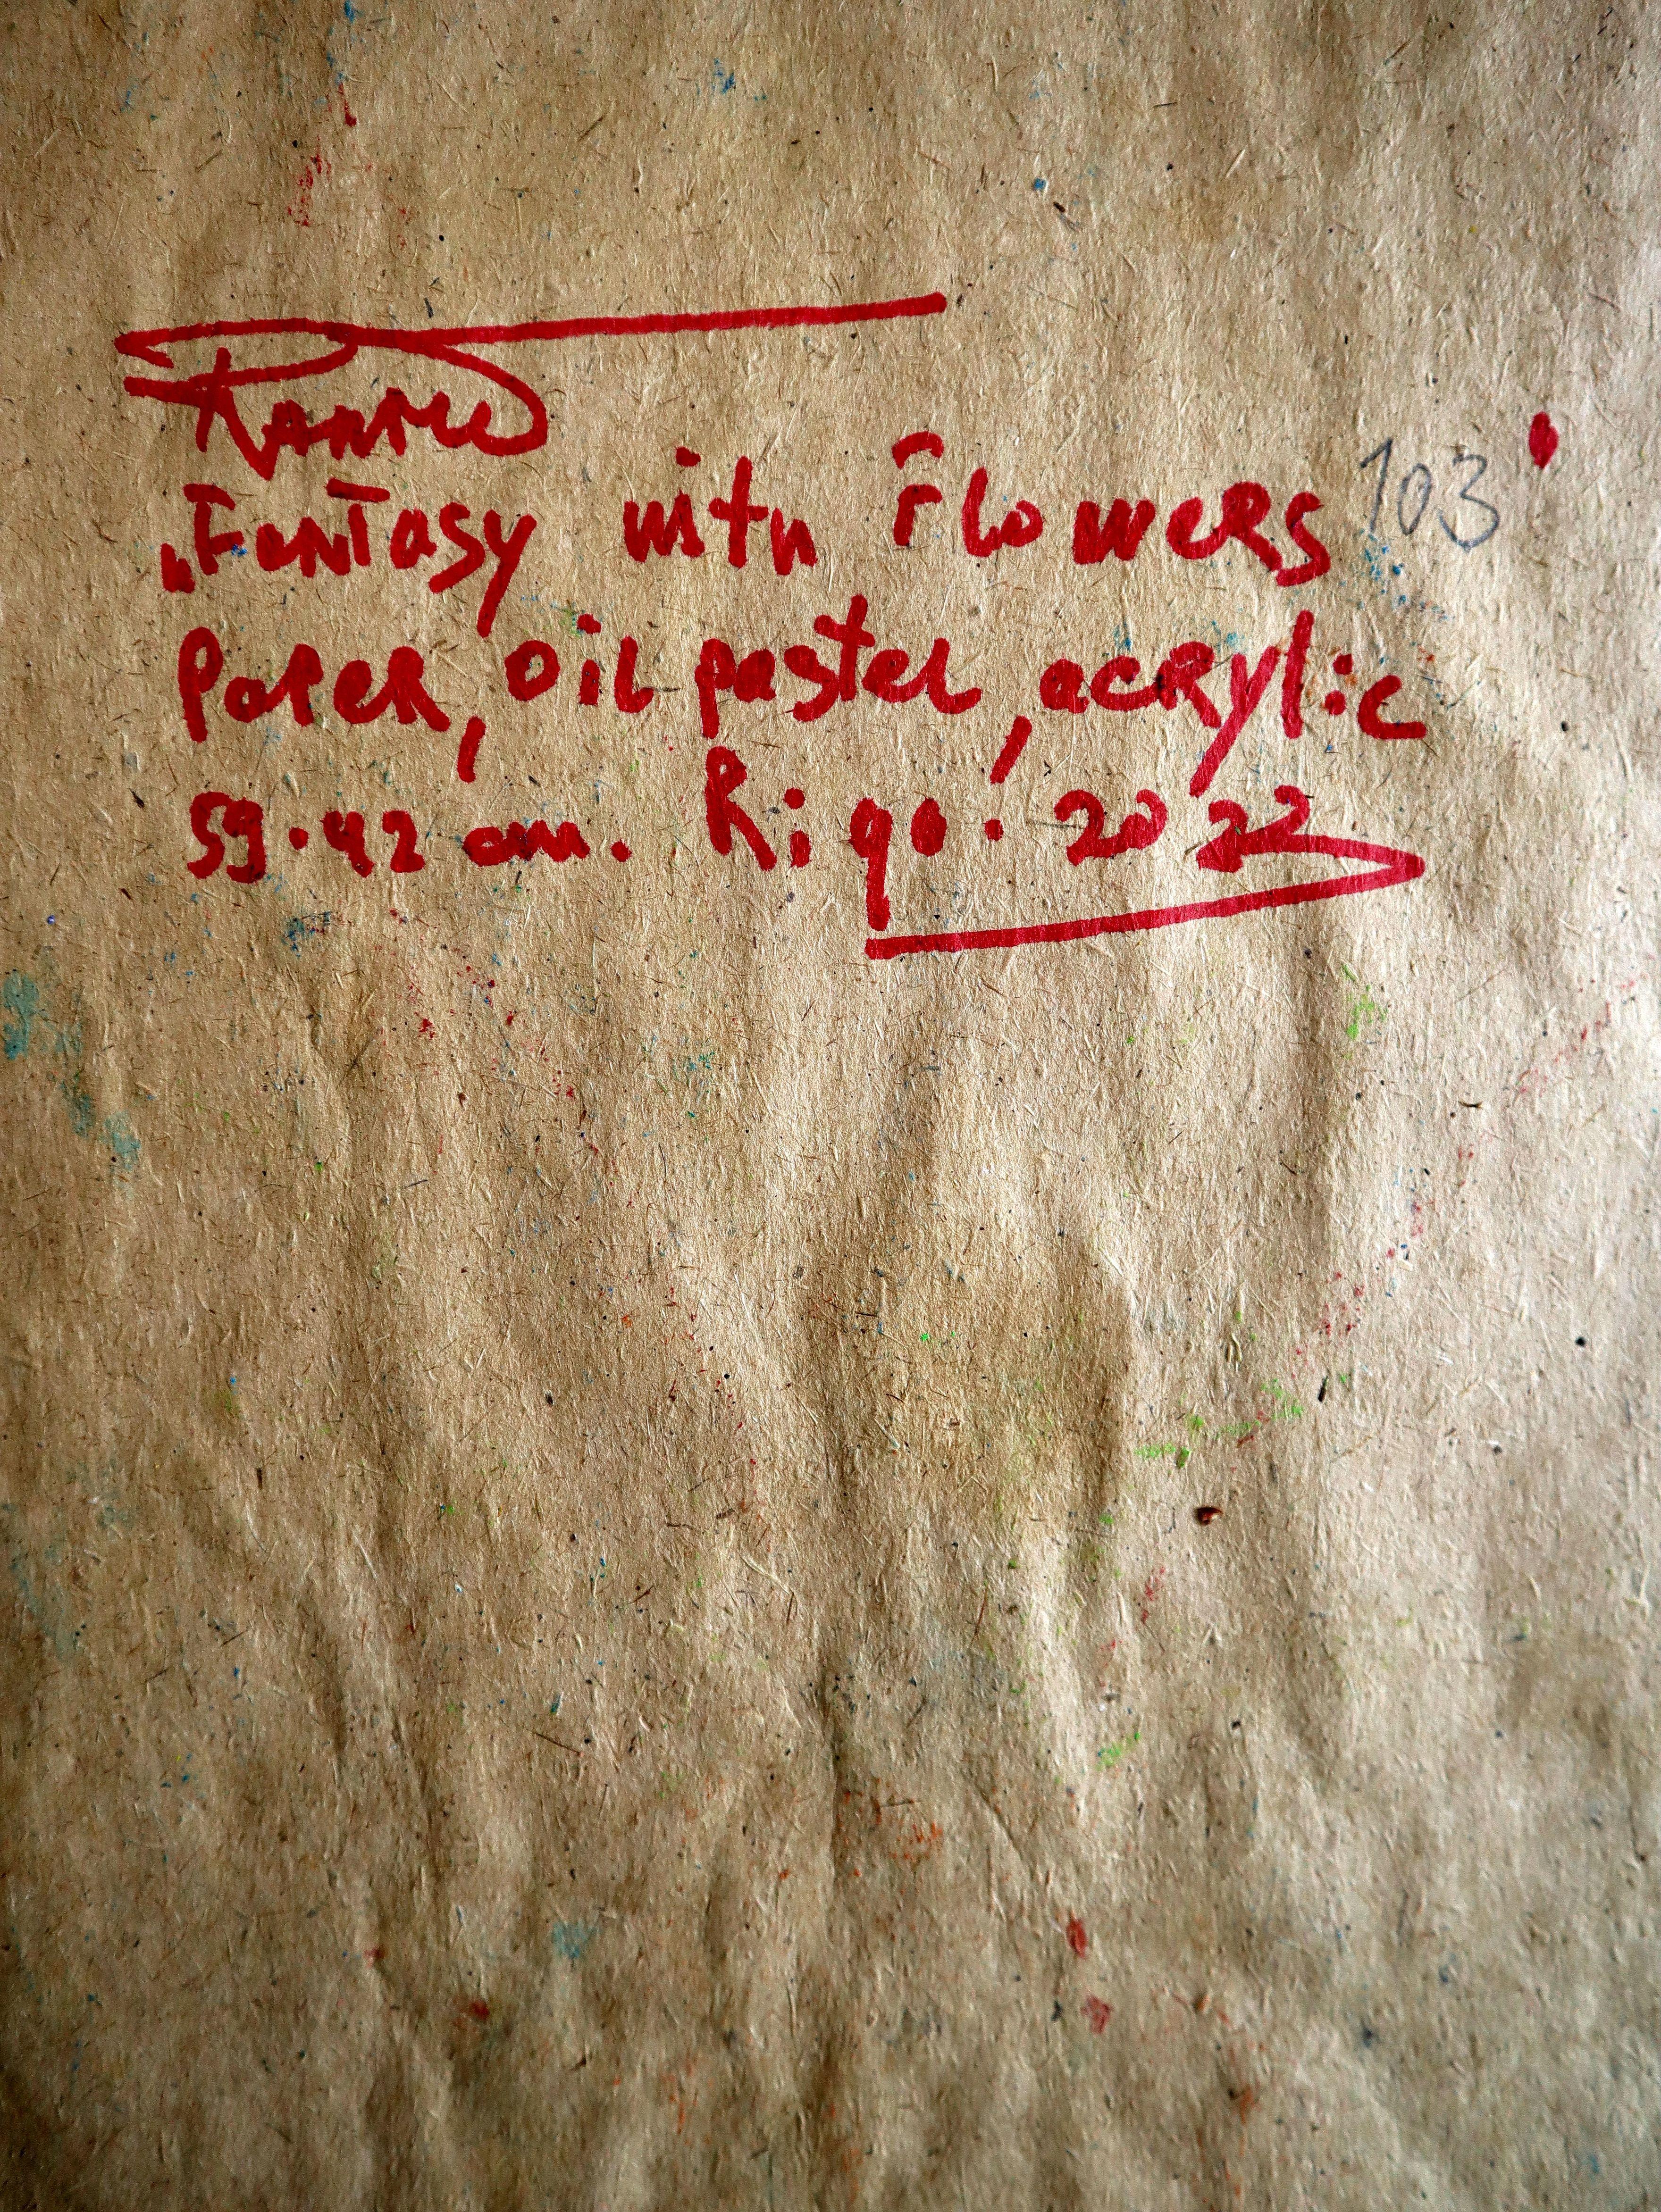 „Fantasy with Flowers 103 '
Paper, oil pastel, acrylic
59.42 cm. Riga. 2022